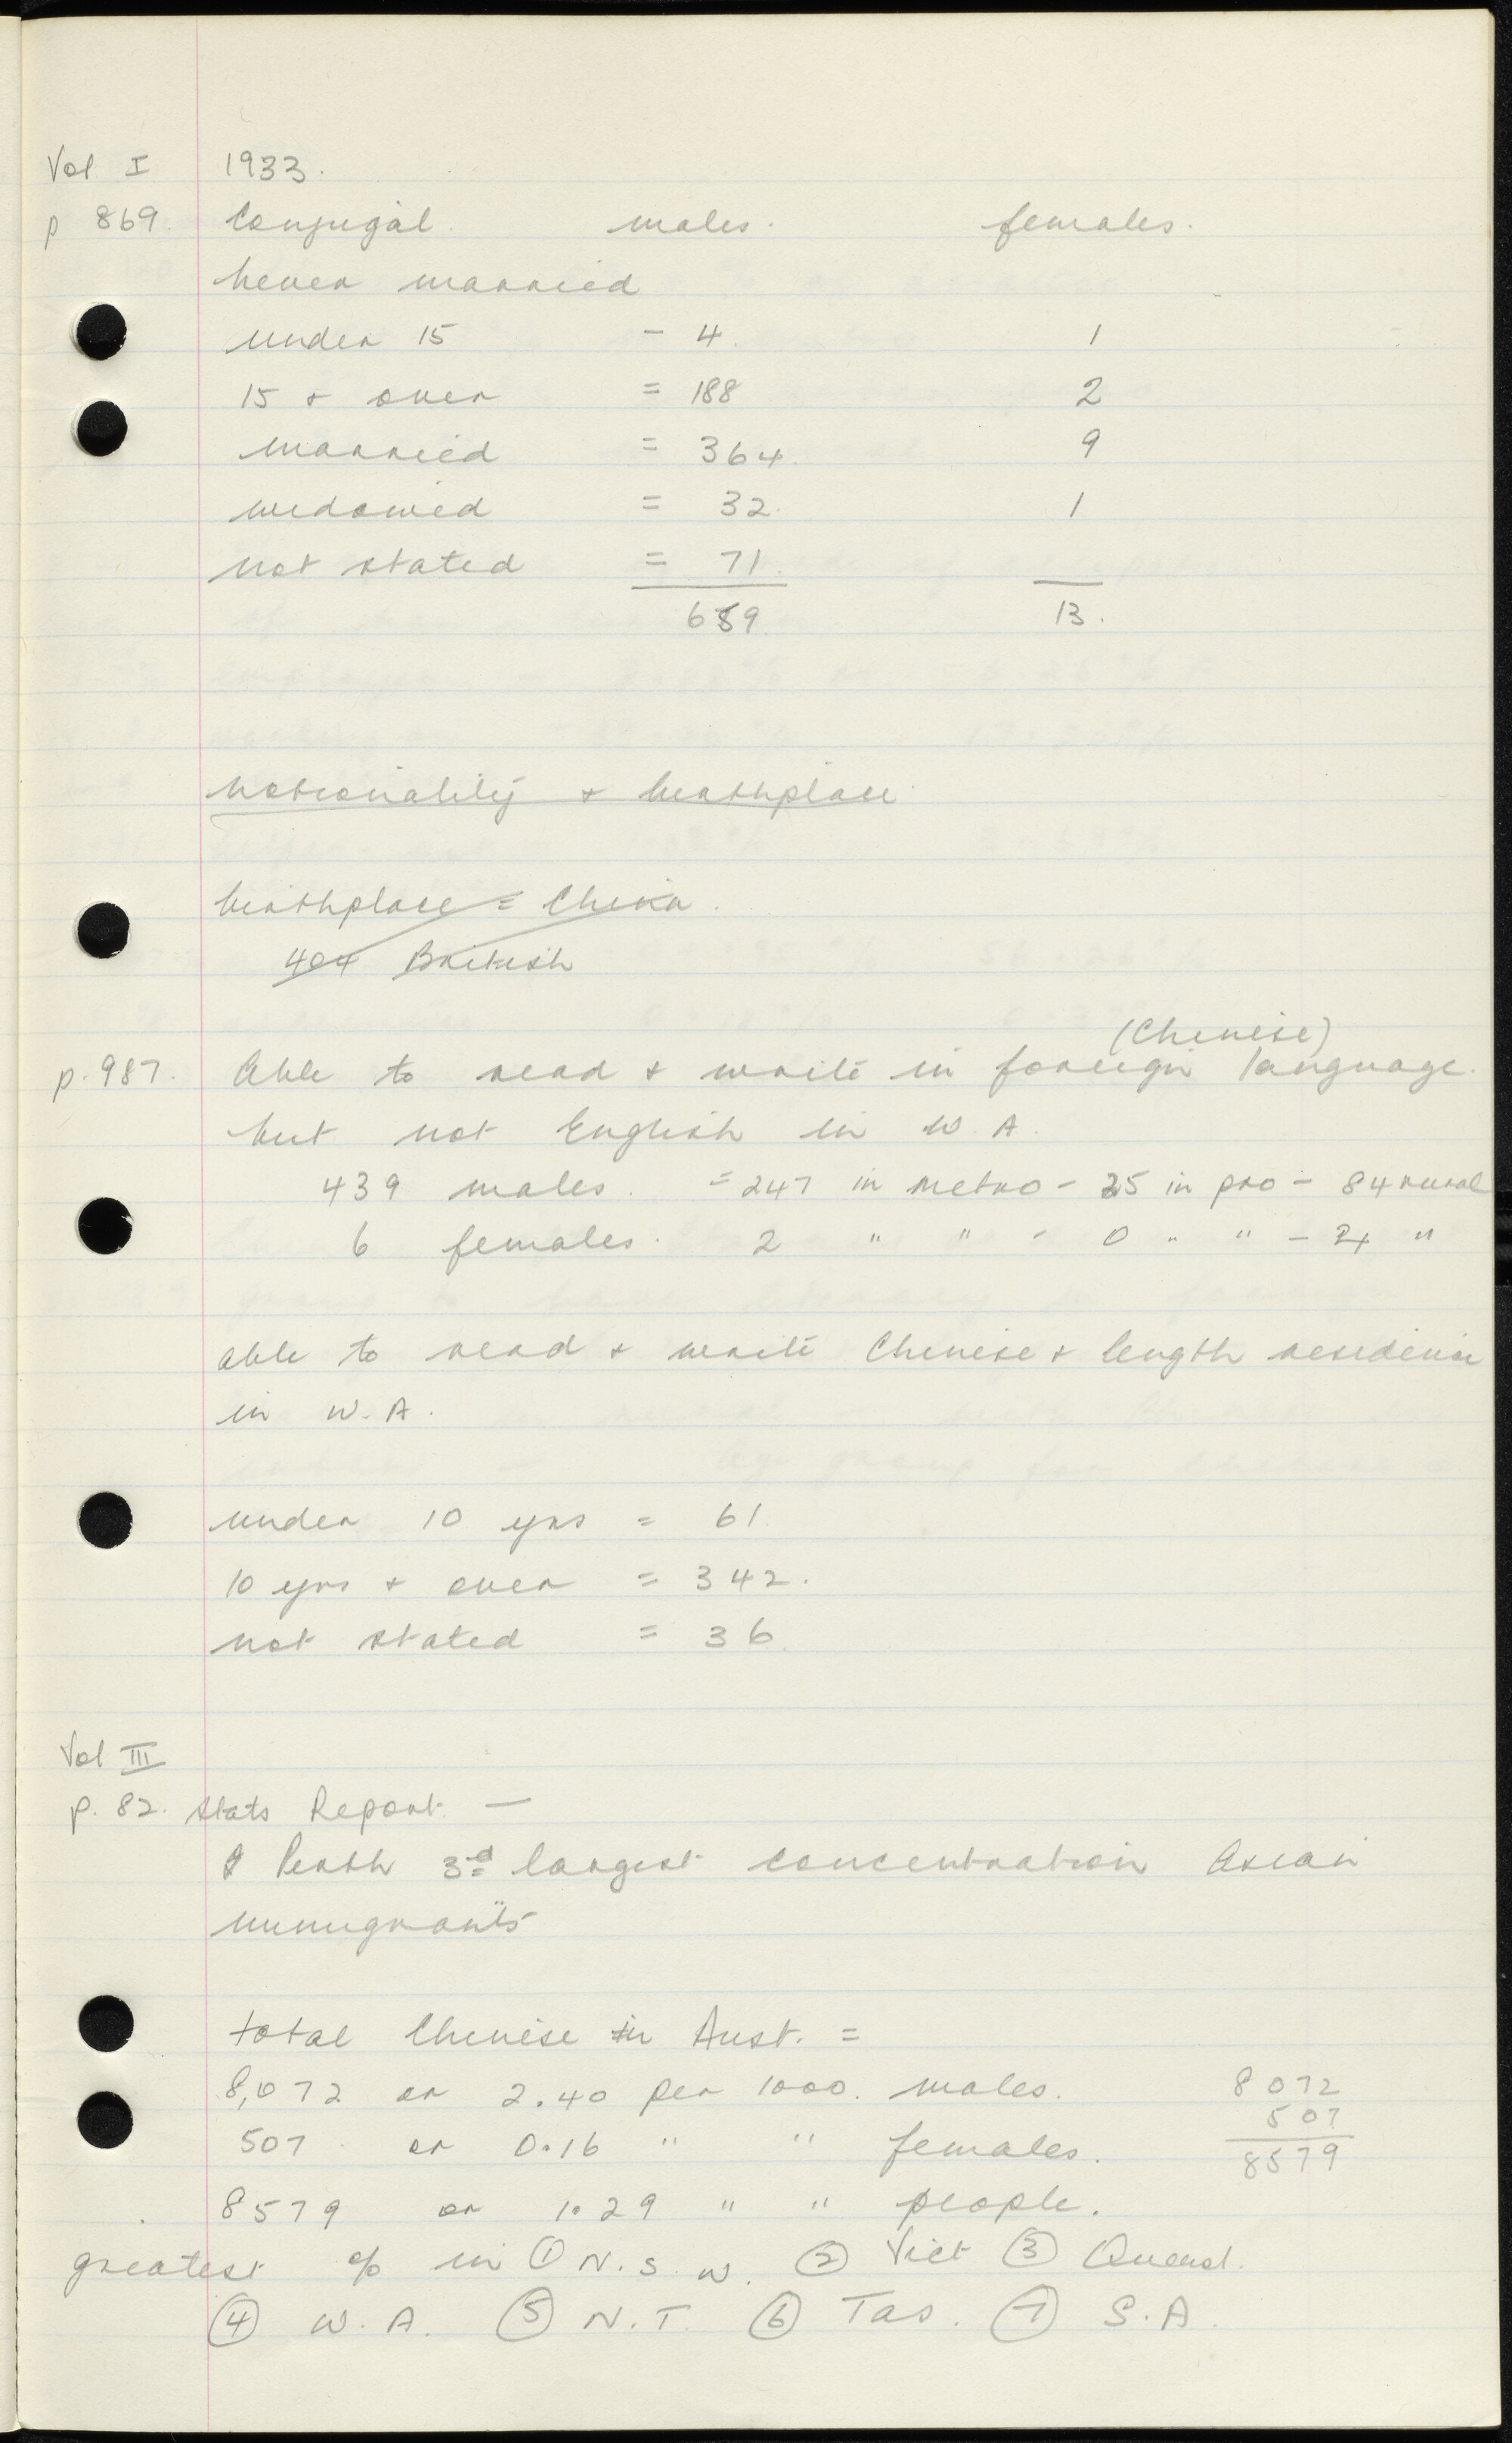 Vol I 1933.
p 869. Conjugal. males. females.
never married
under 15 - 4. 1
15 & over = 188 2
married = 364. 9
widowed = 32. 1
not stated = 71.
659 13.
nationality & birthplace
birthplace = China.
404 British
(Chinese)
p. 987. Able to read & write in foreign language.
but not English in W. A.
439 males. = 247 in metro - 25 in pro - 84 rural
6 females. 2 " " - 0 " " - 4 "
able to read & write Chinese & length residence
in W. A.
under 10 yrs = 61.
10 yrs & over = 342.
not stated = 36.
Vol III
p. 82. Stats Report. —
Perth 3rd largest concentration Asian
immigrants
total Chinese in Aust. =
8,072 or 2.40 per 1000. males. 8072
507
507 or 0.16 " " females. 8579
8579 or 1.29 " " people.
greatest % in ① N. S. W. ② Vict ③ Queensl.
④ W. A. ⑤ N. T. ⑥ Tas. ⑦ S. A.